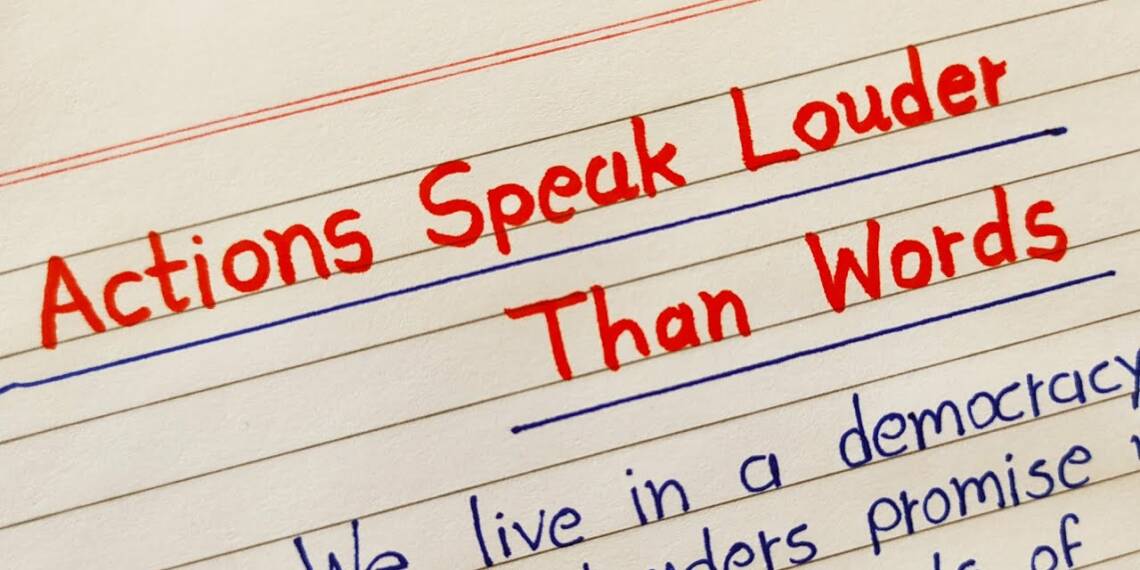 Actions Speak Louder
Than Words
We live in a democracy
promise
of